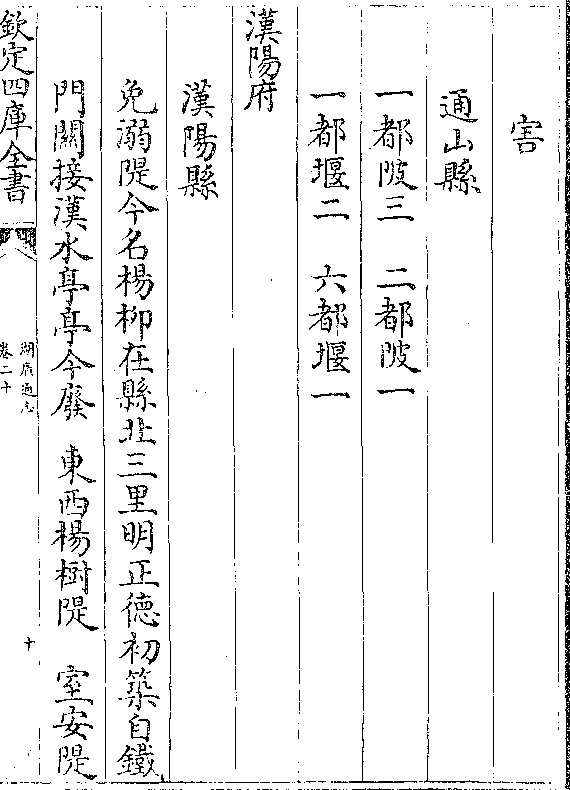 害
通山縣
一都陂三　二都陂一
一都堰二　六都堰一
漢陽府
漢陽縣
免溺隄今名楊柳在縣北三里明正德初築自鐵
門關接漢水亭亭今廢　東西楊樹隄　室安隄
欽定四庫全書
湖廣通志
卷二十
十